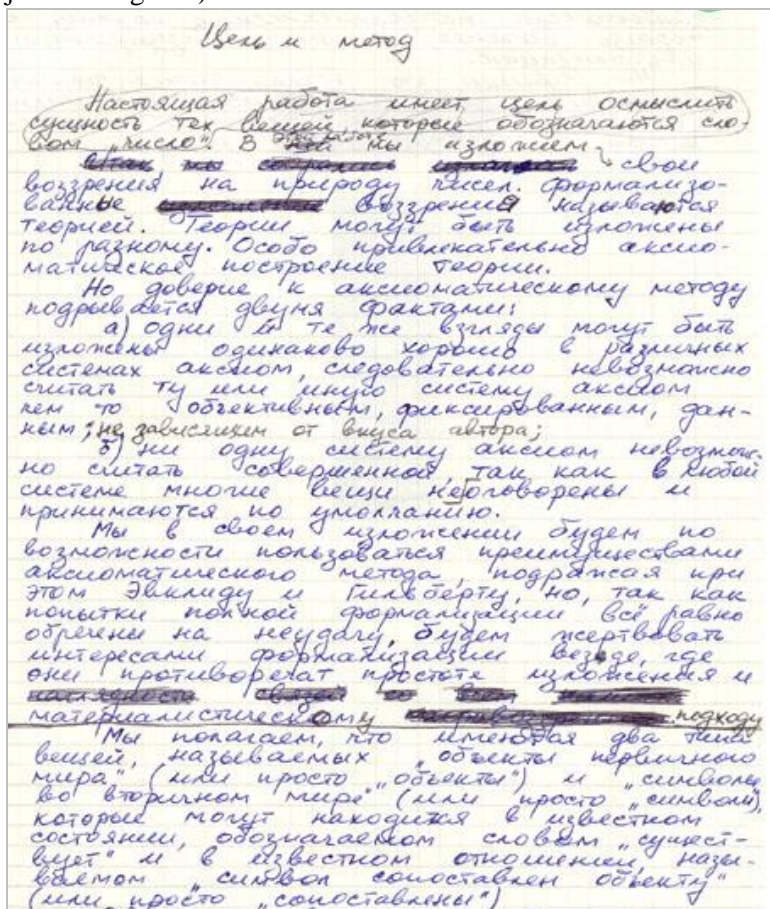 Цель и метод
Настоящая работа имеет цель осмыслить
сущность тех вещей, которые обозначаются сло-
вом „число". В мы изложим
свои
воззрения на природу чисел. Формализо-
ванные воззрения называются
теорией. Теории могут быть изложены
по разному. Особо привлекательно аксио-
матическое построение теории.
Но доверие к аксиоматическому методу
подрывается двумя фактами:
а) одни и те же взгляды могут быть
изложены одинаково хорошо в различных
системах аксиом, следовательно невозможно
считать ту или иную систему аксиом
чем то объективным, фиксированным, дан-
ным; не зависящим от вкуса автора;
б) ни одну систему аксиом невозмож-
но считать совершенной, так как в любой
системе многие вещи неоговорены и
принимаются по умолчанию.
Мы в своем изложении будем по
возможности пользоваться преимуществами
аксиоматического метода, подражая при
этом Эвклиду и Гильберту, но, так как
попытки полной формализации всё равно
обречены на неудачу, будем жертвовать
интересами формализации везде, где
они противоречат простоте изложения и
материалистическому подходу
Мы полагаем, что имеются два типа
вещей, называемых „объекты первичного
мира" (или просто „объекты") и „символы
во вторичном мире" (или просто „символы"),
которые могут находится в известном
состоянии, обозначаемом словом „сущест-
вует" и в известном отношении, назы-
ваемом „символ сопоставлен объекту"
(или просто „сопоставлены")